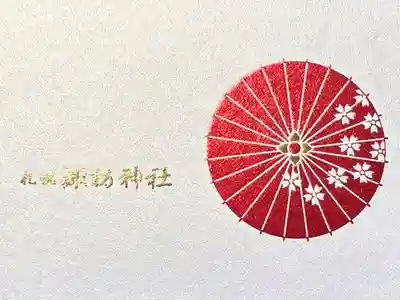 札幌 諏訪神社